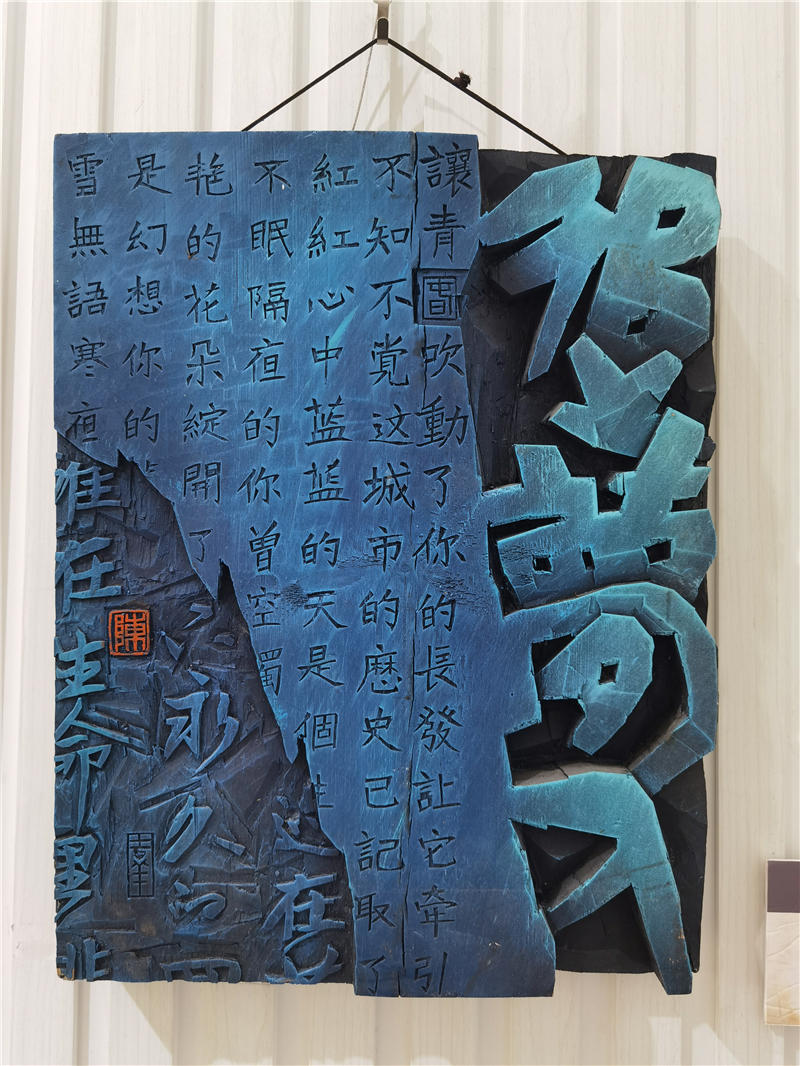 追夢人
讓青吹動了你的長發让它牵引
不知不觉这城市的歷史已記取了
紅紅心中蓝蓝的天是個生
不眠隔夜的你曾空獨
艳的花朵綻開了
是幻想你的
雪無語寒夜
在
永
在生命里
陳